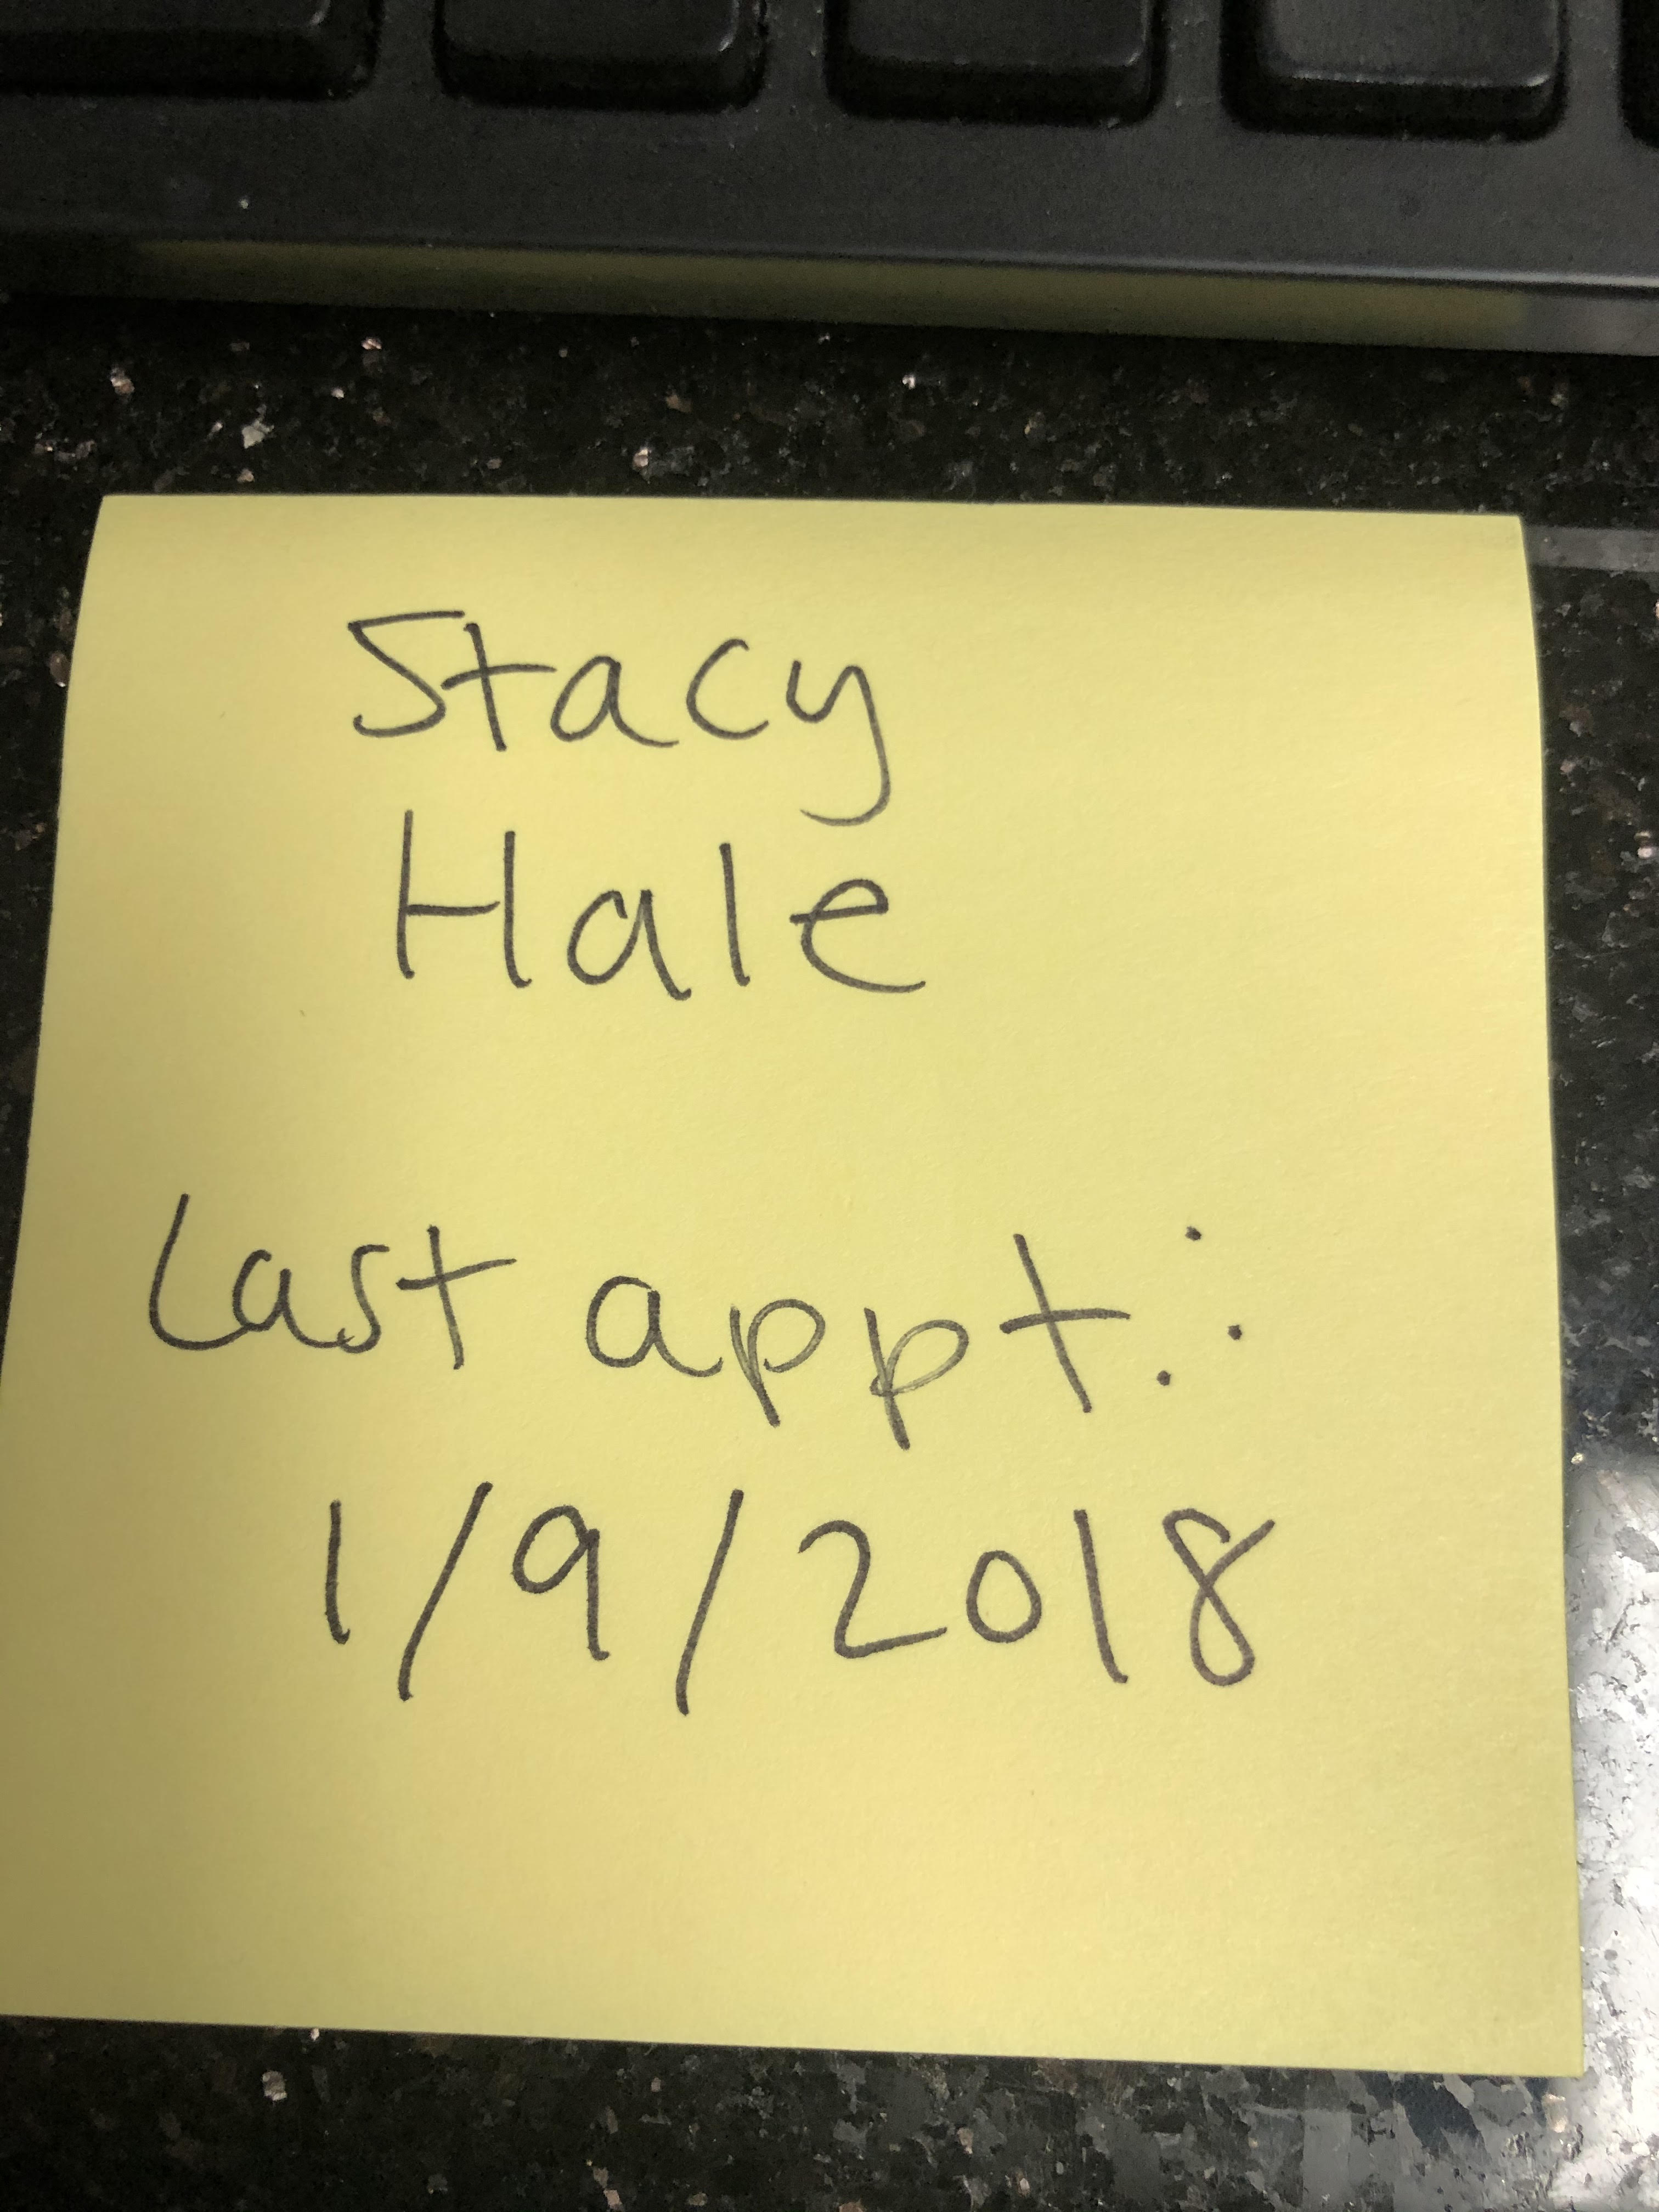 Stacy
Hale
Last appt.:
1/9/2018